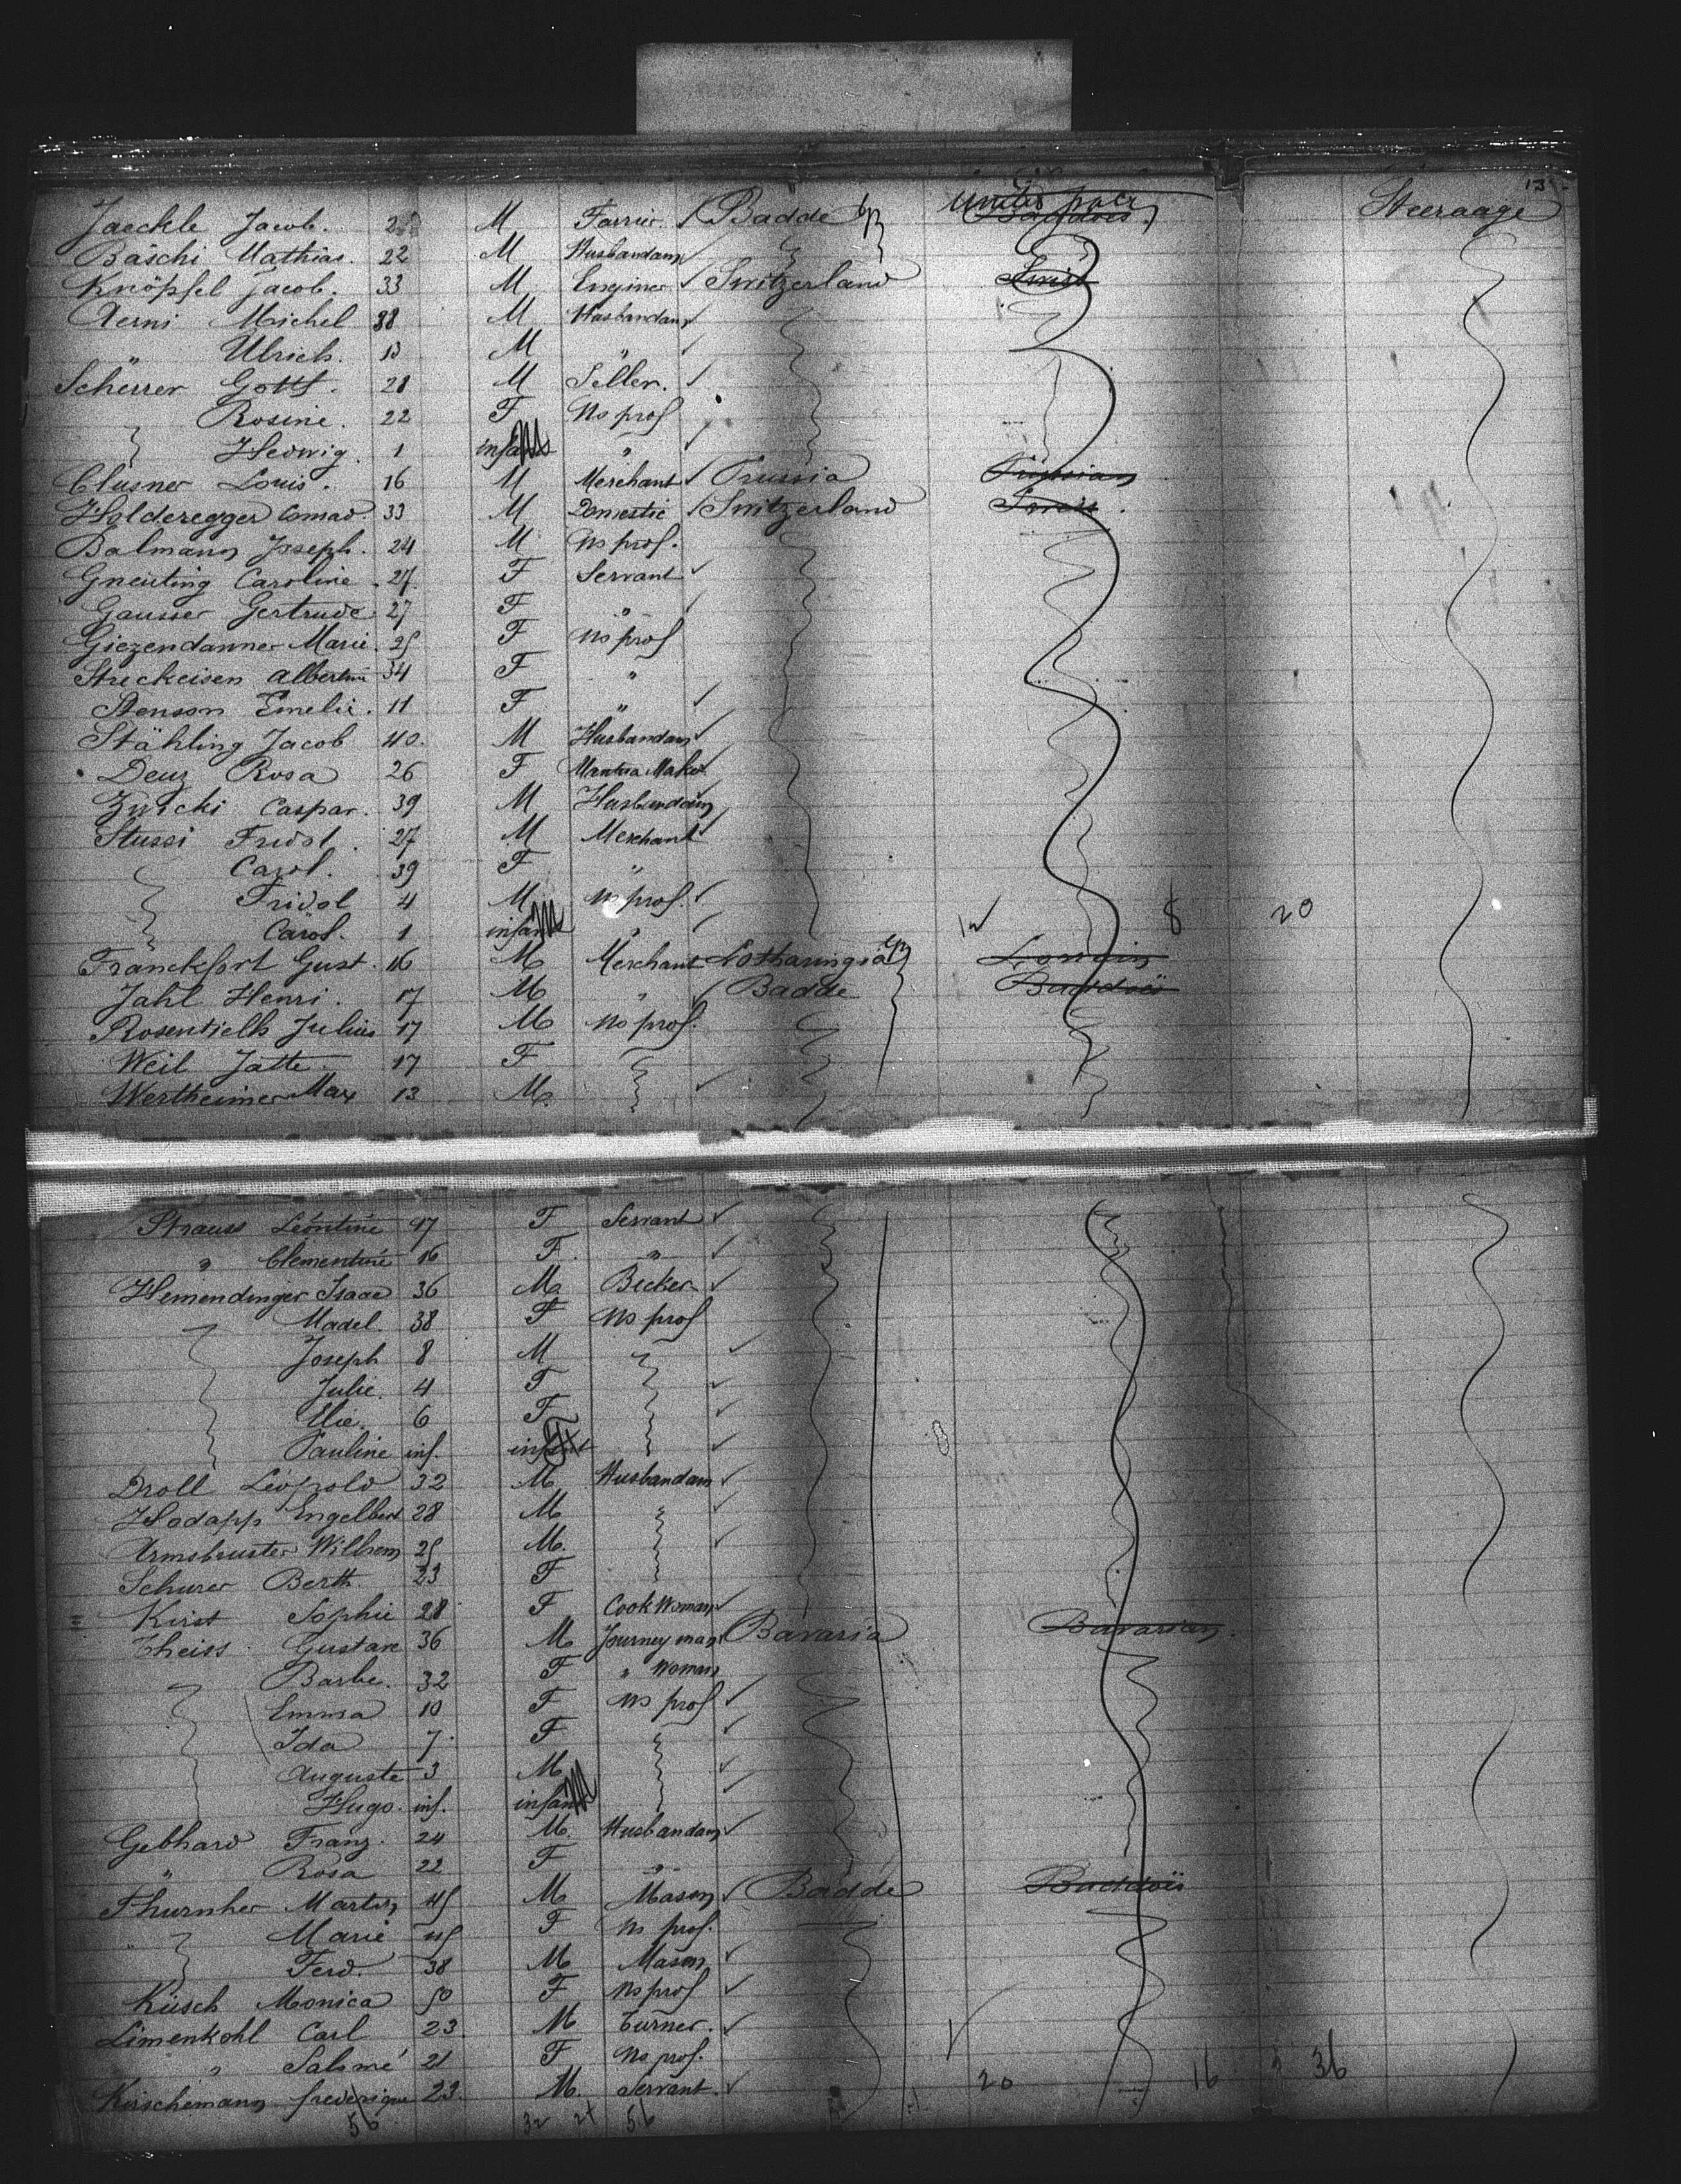 13
Jaeckle Jacob. M Farrier. Badde Steeraage
Bäschi Mathias. 22 M Husbandam
Knöpfel Jacob. 33 M Enginer Switzerland Swiss
Aerni Michel 38 M Husbandam
" Ulrich. 13 M "
Scherrer Gottf. 28 M Seller.
Rosine. 22 F No prof
Hedwig. 1 infant "
Clusner Louis. 16 M Merchant Prussia Prussian
Holderegger Conrad. 33 M Domestic Switzerland Swiss.
Balmann Joseph. 24 M No prof.
Gneiting Caroline. 27 F Servant
Gausser Gertrude. 27 F "
Giezendanner Marie. 25 F No prof
Streckeisen Albertine 34 F "
Stenson Emelie. 11 F "
Stähling Jacob 40. M Husbandam
Deuz Rosa 26 F Mantua Maker
Zwicki Caspar. 39 M Husbandam
Stussi Fridol. 27 M Merchant
Carol. 39 F "
Fridol 4 M No prof.
Carol. 1 infant " 12 8 20
Franckfort Gust. 16 M Merchant Lotharingia Lorrain
Jahl Henri. 17 M " Badde Baddois
Rosentielh Julius 17 M No prof.
Weil Jatte 17 F
Wertheimer Max 13 M.
Strauss Léontine 17 F Servant
" Clementine 16 F. "
Hemendinger Isaac 36 M Becker
Madel 38 F No prof
Joseph 8 M
Julie. 4 F
Elie. 6 F
Pauline inf. infant
Droll Léopold 32 M Husbandam
Hodapp Engelbert 28 M "
Armsbruster Wilhem 25 M.
Schurer Berth 23 F
Kirst Sophie 28 F Cook Woman
Theiss Gustave 36 M Journey man Bavaria Bavarian.
Barbe. 32 F " Woman
Emma 10 F No prof
Ida 7. F
Auguste 3 M
Hugo. inf. infant
Gebhard Franz. 24 M. Husbandam
" Rosa 22 F "
Thurnher Martin 45 M Mason Badde Baddois
" Marie 45 F No prof.
Ferd. 38 M Mason
Küsch Monica 50 F No prof
Limenkohl Carl 23. M Turner.
" Salomé 21 F No prof.
Kirschemann frederique 23. M. Servant. 20 16 36
56 32 24 56